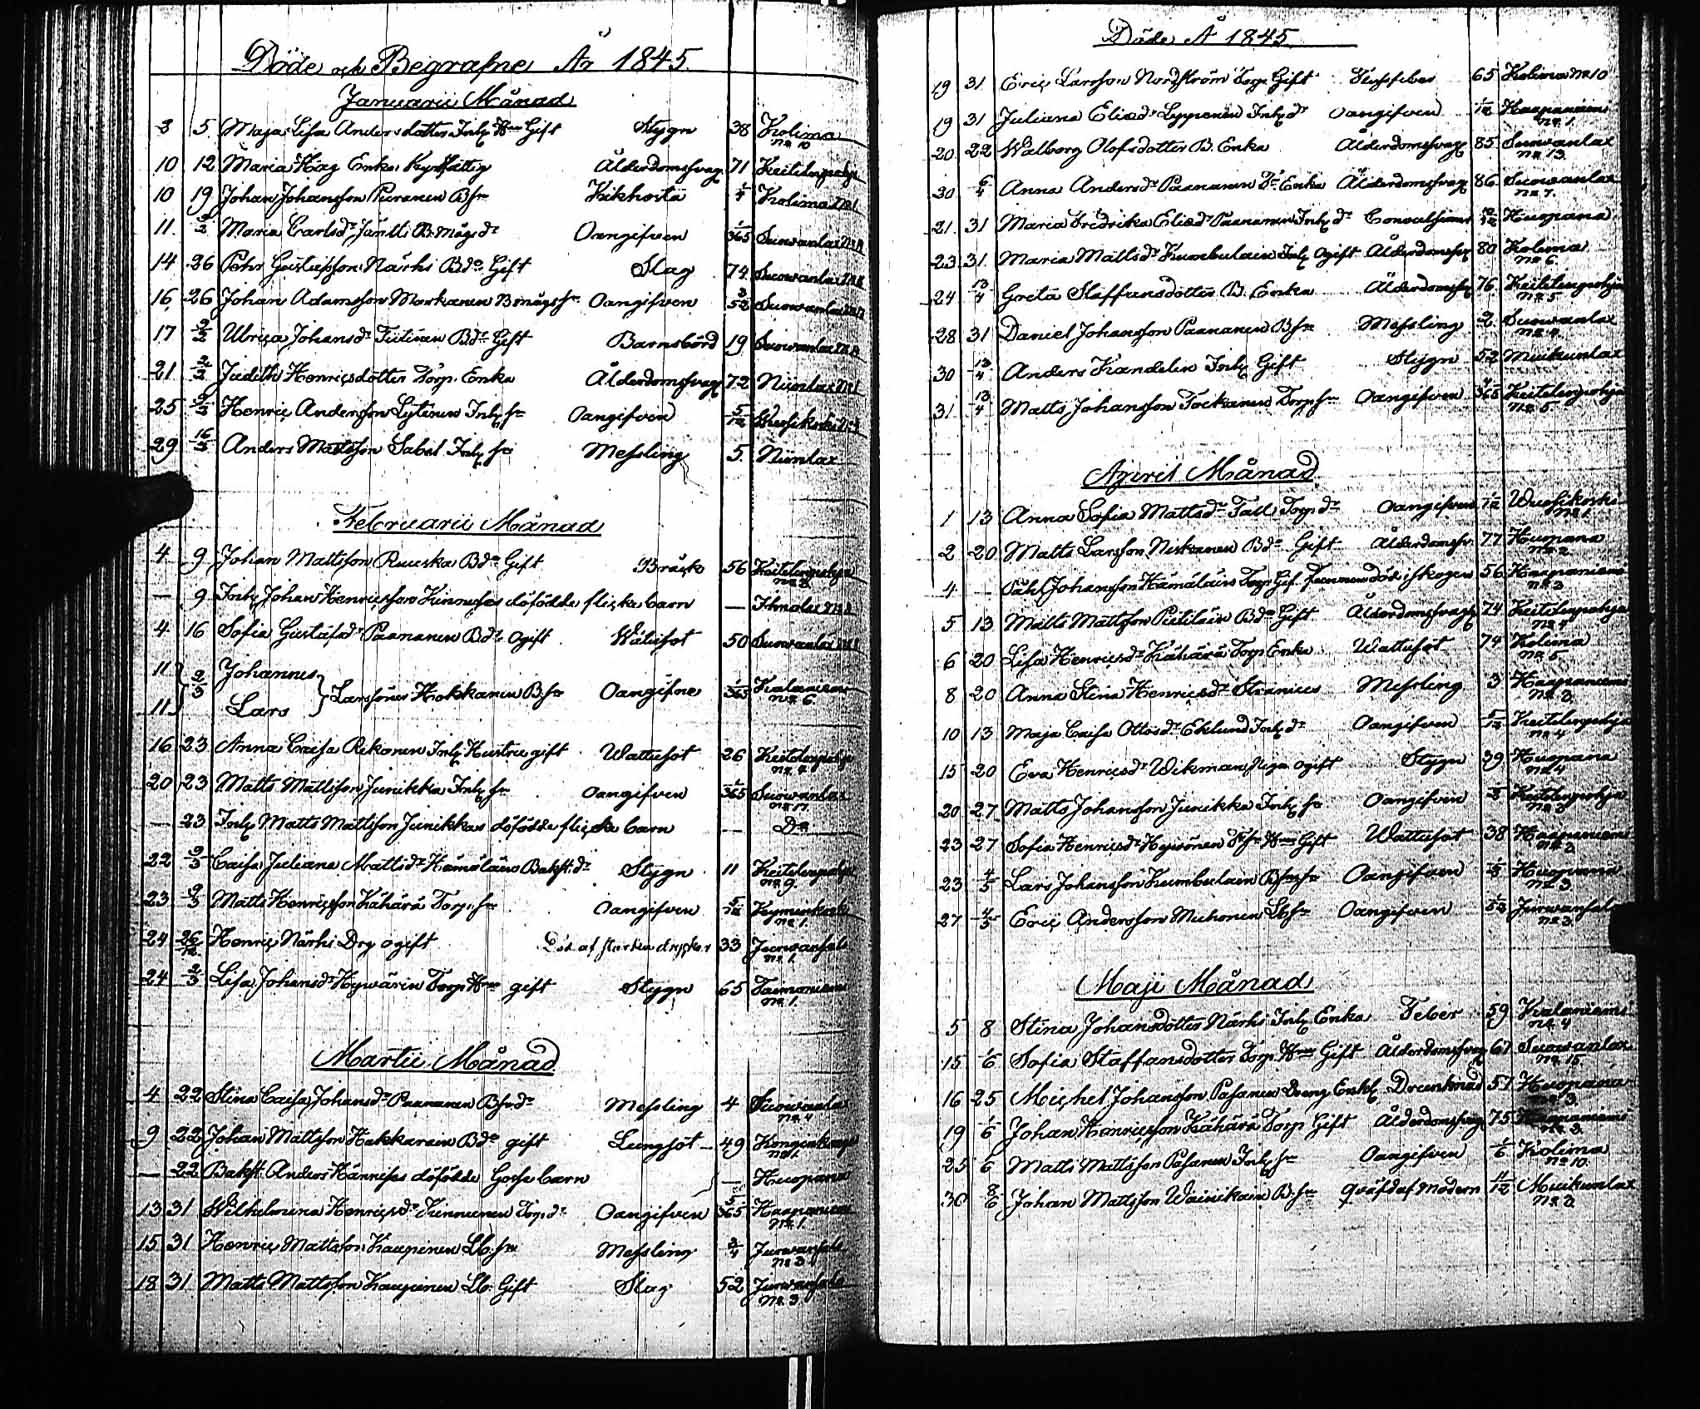 Döde och Begrafne År 1845
Januarii Månad
3 5 Maja Lisa Andersdotter Inhs Hu Gift Stygn 38 Kolima No 10
10 12 Maria Hag Enka Ålderdomsvag 71 Keitelenpohja
10 19 Johan Johansson Puranen Bsn Kikhosta 1/4 Kolima
11 2/2 Maria Carlsdr Jäntti B. Mågs dr Oangifven 1/365 Suovanlax
14 26 Petter Gustafsson Närhi Bde Gift Slag 74 Suovanlax
16 26 Johan Adamsson Markanen Bmågs sn Oangifven 3/52 Suovanlax
17 2/2 Ulrica Johansdr Tiitinen Bdr Gift Barnsbörd 19 Suovanlax
21 2/2 Judith Henricsdotter Torp. Enka Ålderdomsvag 72 Niinlax
25 9/2 Henric Andersson Lytinen Inhs sn Oangifven 5/12 Wuosikoski
29 16/2 Anders Mattsson Sabel Inhs sn Messling 5 Niinlax
Februarii Månad
4 9 Johan Mattsson Ruuska Bde Gift Bråck 56 Keitelenpohja
— 9 Inhs Johan Henricsson Kinnuses döfödde flicke barn —
4 16 Sofia Gustafsdr Paananen Bdr ogift Wattusot 50 Suovanlax
11 Johannes
2/3 Larssöner Hakkarainen Bsn Oangifne 1/365 Kalaniemi No 6
11 Lars
16 23 Anna Caisa Rekonen Inhs Hustru gift Wattusot 26 Keitelenpohja
20 23 Matts Mattsson Junikka Inhs sn Oangifven 1/365 Suovanlax
— 23 Inhs Matts Mattsson Junikkas döfödde flicke barn — Do
22 2/3 Caisa Juliana Mattsdr Hämäläin Bakst. dr Stygn 11 Keitelenpohja No 9
23 2/3 Matts Henricsson Kähärä Torp. sn Oangifven 5/12 Keymenkoski No 1
24 26/12 Henric Närhi Drg ogift Död af starka drycker 33 Jurvansalo No 1
24 2/3 Lisa Johansdr Hyvärin Torp Hu gift Stygn 65 Taimoniemi No 1
Martii Månad
4 22 Stina Caisa Johansdr Paananen Bsn dr Messling 4 Suovanlax No 4
9 22 Johan Mattsson Hakkarain Bde gift Lungsot 49 Kongenkangas No 1
— 22 Bakst. Anders Hännises döfödde Gosse barn — Huopana
13 31 Wilhelmina Henricsdr Kinnunen Torp. dr Oangifven 5/365 Haapaniemi No 1
15 31 Henric Mattsson Kauppinen Lb. sn Messling 3/4 Jurvansalo No 3
18 31 Matts Mattsson Kauppinen Lb. Gift Slag 52 Jurvansalo No 3
Döde År 1845
19 31 Eric Larsson Nordström Torp Gift 65 Kolima No 10
19 31 Juliana Eliædr Lyppönen Inhs dr Oangifven Haapaniemi No 1
20 22 Walborg Olofsdotter B. Enka Ålderdomsvag 85 Suovanlax No 13
30 6/4 Anna Andersdr Paananen Enka Ålderdomsvag 86 Suovanlax No 7
21 31 Maria Fredrika Eliædr Paananen Inhs dr Convulsioner Huopana
23 31 Maria Mattsdr Kumbulain Inhs ogift Ålderdomsv 80 Kolima No 6
24 13/4 Greta Staffansdotter B. Enka Ålderdomsv 76 Keitelenpohja No 5
28 31 Daniel Johansson Paananen Bsn Messling 2 Suovanlax No 4
30 13/4 Anders Kandelin Inhs Gift Stygn 52 Muikunlax
31 13/4 Matts Johansson Tockanen Torp sn Oangifven Keitelenpohja No 5
April Månad
1 13 Anna Sofia Mattsdr Tall Torp. dr Oangifven Wuosikoski No 1
2 20 Matts Larsson Niskanen Bde Gift Ålderdomsv. 77 Huopana No 2
4 — Påhl Johansson Hämäläin Torp Gift funnen död i skogen 56 Haapaniemi No 3
5 13 Matts Mattsson Pietiläin Bde Gift Ålderdomsvag 74 Keitelenpohja No 4
6 20 Lisa Henricsdr Kähärä Torp Enka Wattusot 74 Kolima No 5
8 20 Anna Stina Henricsdr Stranius Messling 3 Haapaniemi No 3
10 13 Maja Caisa Ottosdr Eklund Inhs dr Oangifven 5/12 Keitelenpohja No 4
15 20 Eva Henricsdr Wikman Piga ogift Stygn 29 Huopana No 4
20 27 Matts Johansson Junikka Inhs sn Oangifven Keitelenpohja No 3
23 27 Sofia Henricsdr Hyvönen Hu Gift Wattusot 38 Haapaniemi No 3
23 4/5 Lars Johansson Kumbulain Bsn sn Oangifven Huopana No 3
27 4/5 Eric Andersson Muhonen Lb sn Oangifven Jurvansalo No 3
Maji Månad
5 8 Stina Johansdotter Närhi Inhs Enka Feber 59 Kalaniemi No 4
15 1/6 Sofia Staffansdotter Torp. Hu Gift Ålderdomsvag 67 Suovanlax No 15
16 25 Michel Johansson Pasanen Dreng Enkl. Drunknad 57 Huopana No 3
19 1/6 Johan Henricsson Kähärä Torp Gift Ålderdomsvag 75 Haapaniemi No 3
25 6 Matts Mattsson Pasanen Inhs sn Oangifven 1/6 Kolima No 10
30 8/6 Johan Mattsson Wainikain Bsn Qväfd af Modern 11/12 Muikunlax No 2